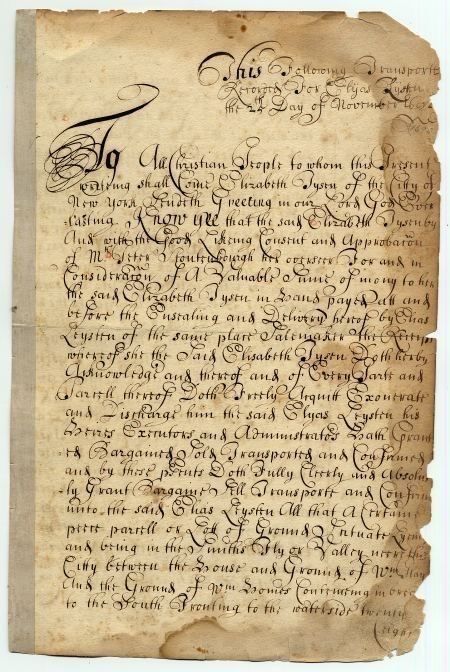 This Following Transporte
Recorded For Elyas Leysten
the 24th Day of November
To All Christian People to whom this Present
writeing shall Come Elizabeth Tysen of the Citty of
New York Sendeth Greeting in our Lord God Ever
lasting Know yee that the said Elizabeth Tysen by
And with the Good Likeing Consent and Approbacon
of Mr Peter her overseer For and in
Consideracon of A Valuable Sume of mony to her
the said Elizabeth Tysen in hand payed att and
before the Ensealing and Delivery hereof by Elias
Leysten of the same place Salemaker the Receipt
whereof she the Said Elisabeth Tysen Doth herby
Acknowledge and thereof and of Every Parte and
Parcell thereof Doth Freely Acquitt Exonerate
and Discharge him the said Elyas Leysten his
Heires Executors and Administrators Hath Grant
ed Bargained Sold Transported and Confirmed
and by these psents Doth Fully Cleerly and Absolut
ly Grant Bargaine Sell Transporte and Confirm
unto the said Elias Leysten All that A Certaine
peece parcell or Lott of Ground Scituate Lyeing
and being in the Smiths Fly or Valley neere this
Citty between the House and Ground of Wm
And the Ground of Wm Bomes Conteining in
to the South Fronting to the waterside twenty
Eight